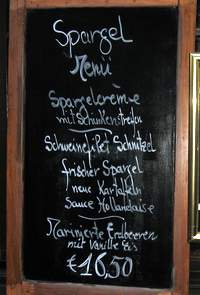 Spargel
Menü
Spargelcrème
mit Schinkenstreifen
Schweinefilet Schnitzel
frischer Spargel
neue Kartoffeln
Sauce Hollandaise
Marinierte Erdbeeren
mit Vanille Eis
€ 16,50